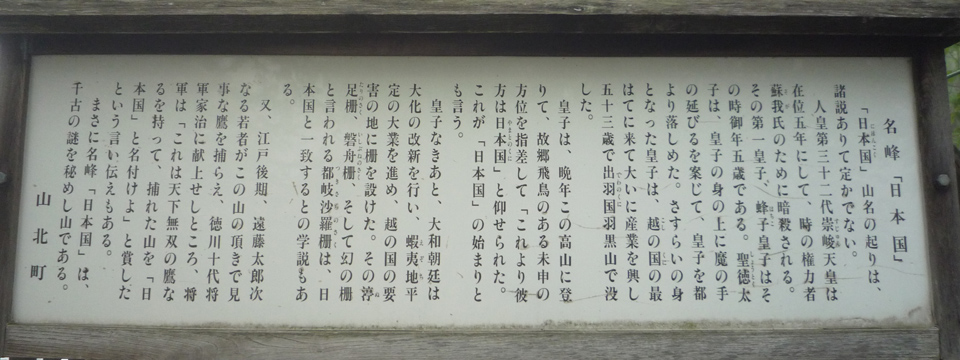 名峰「日本国」
「日本国」山名の起りは、
諸説ありて定かでない。
人皇第三十二代崇峻天皇は
在位五年にして、時の権力者
蘇我氏のために暗殺される。
その第一皇子、蜂子皇子はそ
の時御年五歳である。聖徳太
子は、皇子の身の上に魔の手
の延びるを案じて、皇子を都
より落しめた。さすらいの身
となった皇子は、越の国の最
はてに来て大いに産業を興し
五十三歳で出羽国羽黒山で没
した。
皇子は、晩年この高山に登
りて、故郷飛鳥のある未申の
方位を指差して「これより彼
方は日本国」と仰せられた。
これが「日本国」の始まりと
も言う。
皇子なきあと、大和朝廷は
大化の改新を行い、蝦夷地平
定の大業を進め、越の国の要
害の地に柵を設けた。その渟
足柵、磐舟柵、そして幻の柵
と言われる都岐沙羅柵は、日
本国と一致するとの学説もあ
る。
又、江戸後期、遠藤太郎次
なる若者がこの山の頂きで見
事な鷹を捕らえ、徳川十代将
軍家治に献上せしところ、将
軍は「これは天下無双の鷹な
るを持って、捕れた山を「日
本国」と名付けよ」と賞した
という言い伝えもある。
まさに名峰「日本国」は、
千古の謎を秘めし山である。
山北町